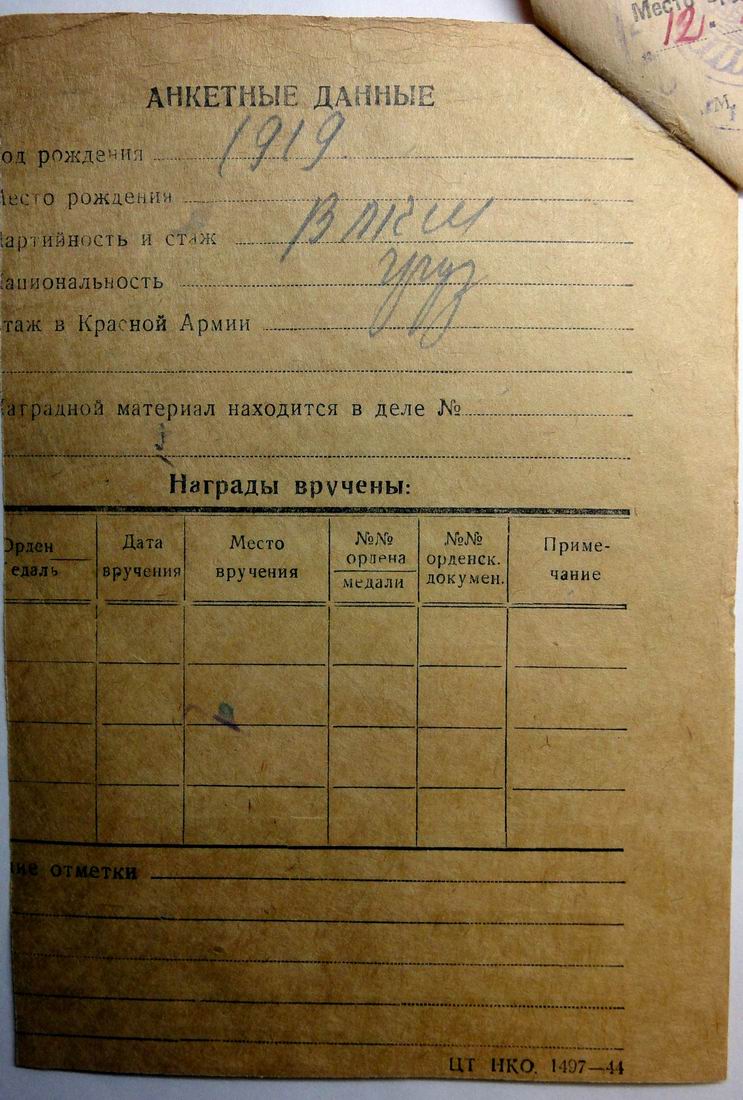 Место
12.
м,
АНКЕТНЫЕ ДАННЫЕ
од рождения 1919
есто рождения
артийность и стаж ВЛКСМ
ациональность
таж в Красной Армии
аградной материал находится в деле №
Награды вручены:
Орден
едаль
Дата
вручения
Место
вручения
№№
ордена
медали
№№
орденск.
докумен.
Приме-
чание
ие отметки
ЦТ НКО. 1497—44